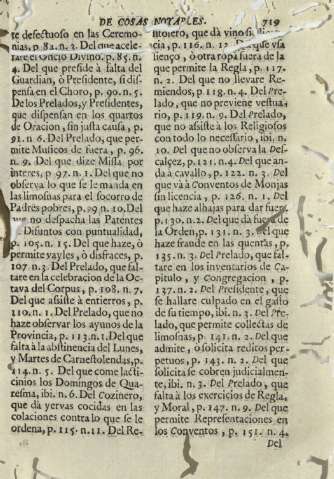 DE COSAS NOTABLES. 719
te defectuoso en las Ceremo-
nias, p. 82. n. 2. Del que acele-
rare el Oficio Divino, p. 85. n.
4. Del que preside à falta del
Guardian, ò Presidente, si dis-
pensa en el Choro, p. 90. n. 5.
De los Prelados, y Presidentes,
que dispensan en los quartos
de Oracion, sin justa causa, p.
91. n. 6. Del Prelado, que per-
mite Musicos de fuera, p. 96.
n. 9. Del que dize Missa por
interes, p. 97. n. 1. Del que no
observa lo que se le manda en
las limosnas para el socorro de
Padres pobres, p. 99 n. 10. Del
que no despacha las Patentes
Difuntos con puntualidad,
p. 105. n. 15. Del que haze, ò
permite vayles, ò disfraces, p.
107 n. 3. Del Prelado, que fal-
tare en la celebracion de la Oc-
tava del Corpus, p. 108. n. 7.
Del que assiste à entierros, p.
110. n. 1. Del Prelado, que no
haze observar los ayunos de la
Provincia, p. 113. n. 1. Del que
falta à la abstinencia del Lunes,
y Martes de Carnestolendas, p.
114. n. 5. Del que come lacti-
cinios los Domingos de Qua-
resma, ibi. n. 6. Del Cozinero,
que dà yervas cocidas en las
colaciones contra lo que se le
ordena, p. 115. n. 11. Del Re-
fitolero, que dà vino sin licen-
cia, p. 116. n. 12. Del que usa
lienço, ò otra ropa fuera de la
que permite la Regla, p. 117.
n. 2. Del que no llevare Re-
miendos, p. 118. n. 4. Del Pre-
lado, que no previene vestua-
rio, p. 119. n. 9. Del Prelado,
que no assiste à los Religiosos
con todo lo necessario, ibi. n.
10. Del que no observa la Des-
calçez, p. 121. n. 4. Del que an-
da à cavallo, p. 122. n. 3. Del
que và à Conventos de Monjas
sin licencia, p. 126. n. 1. Del
que haze alhajas para dar fuera,
p. 130. n. 2. Del que dà fuera de
la Orden, p. 131. n. 3. Del que
haze fraude en las quentas, p.
135. n. 3. Del Prelado, que fal-
tare en los inventarios de Ca-
pitulo, y Congregacion, p.
137. n. 2. Del Presidente, que
se hallare culpado en el gasto
de su tiempo, ibi. n. 3. Del Pre-
lado, que permite collectas de
limosnas, p. 141. n. 2. Del que
admite, ò solicita reditos per-
petuos, p. 143. n. 2. Del que
solicita se cobren judicialmen-
te, ibi. n. 3. Del Prelado, que
falta à los exercicios de Regla,
y Moral, p. 147. n. 9. Del que
permite Representaciones en
los Conventos, p. 151. n. 4.
Del